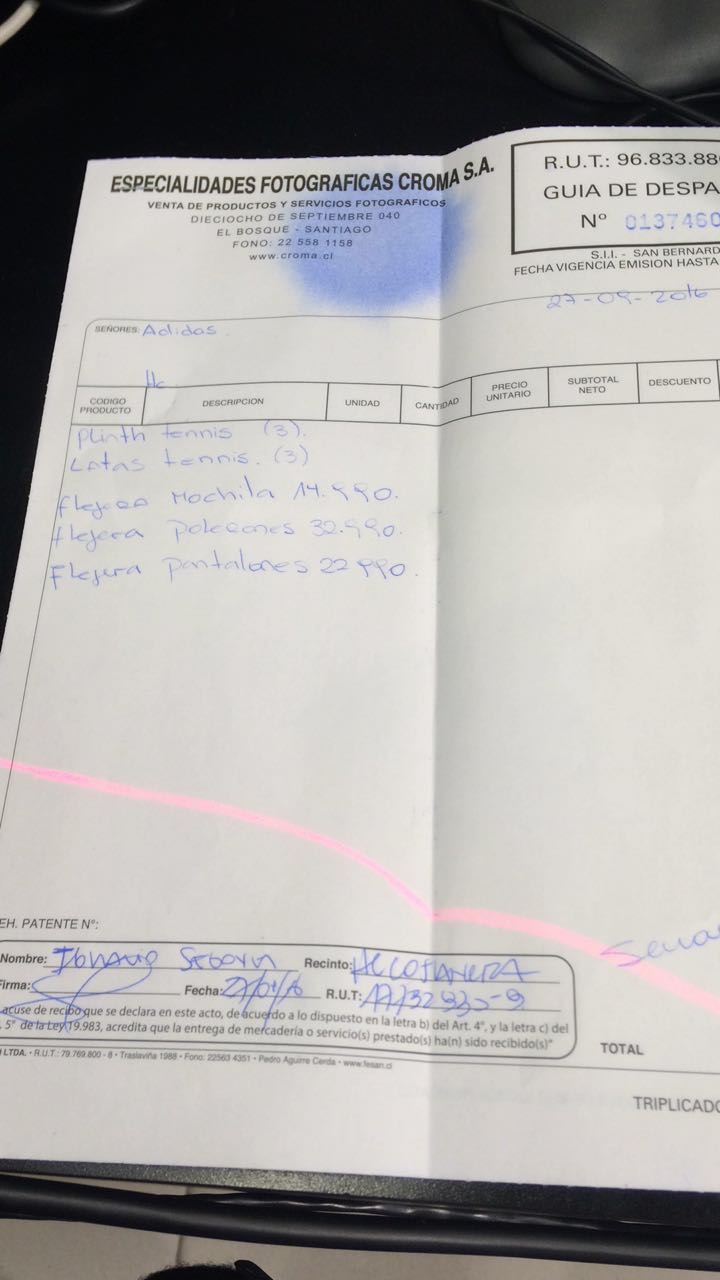 ESPECIALIDADES FOTOGRAFICAS CROMA S.A.
VENTA DE PRODUCTOS Y SERVICIOS FOTOGRAFICOS
DIECIOCHO DE SEPTIEMBRE 040
EL BOSQUE - SANTIAGO
FONO: 22 558 1158
www.croma.cl
R.U.T.: 96.833.88
GUIA DE DESPA
Nº 0137460
S.I.I. - SAN BERNARD
FECHA VIGENCIA EMISION HASTA
27-09-2016
SEÑORES: Adidas
CODIGO PRODUCTO DESCRIPCION UNIDAD CANTIDAD PRECIO UNITARIO SUBTOTAL NETO DESCUENTO
Plinth tennis (3).
Latas tennis. (3)
Flejera Mochila 14.990.
flejera polerones 32.990.
Flejera pantalones 22 990.
EH. PATENTE Nº:
Nombre: Recinto:
Firma: Fecha: R.U.T:
acuse de recibo que se declara en este acto, de acuerdo a lo dispuesto en la letra b) del Art. 4°, y la letra c) del
5° de la Ley 19.983, acredita que la entrega de mercadería o servicio(s) prestado(s) ha(n) sido recibido(s)"
TOTAL
LTDA. • R.U.T.: 79.769.800 - 8 • Traslaviña 1988 • Fono: 22563 4351 • Pedro Aguirre Cerda • www.fesan.cl
TRIPLICADO